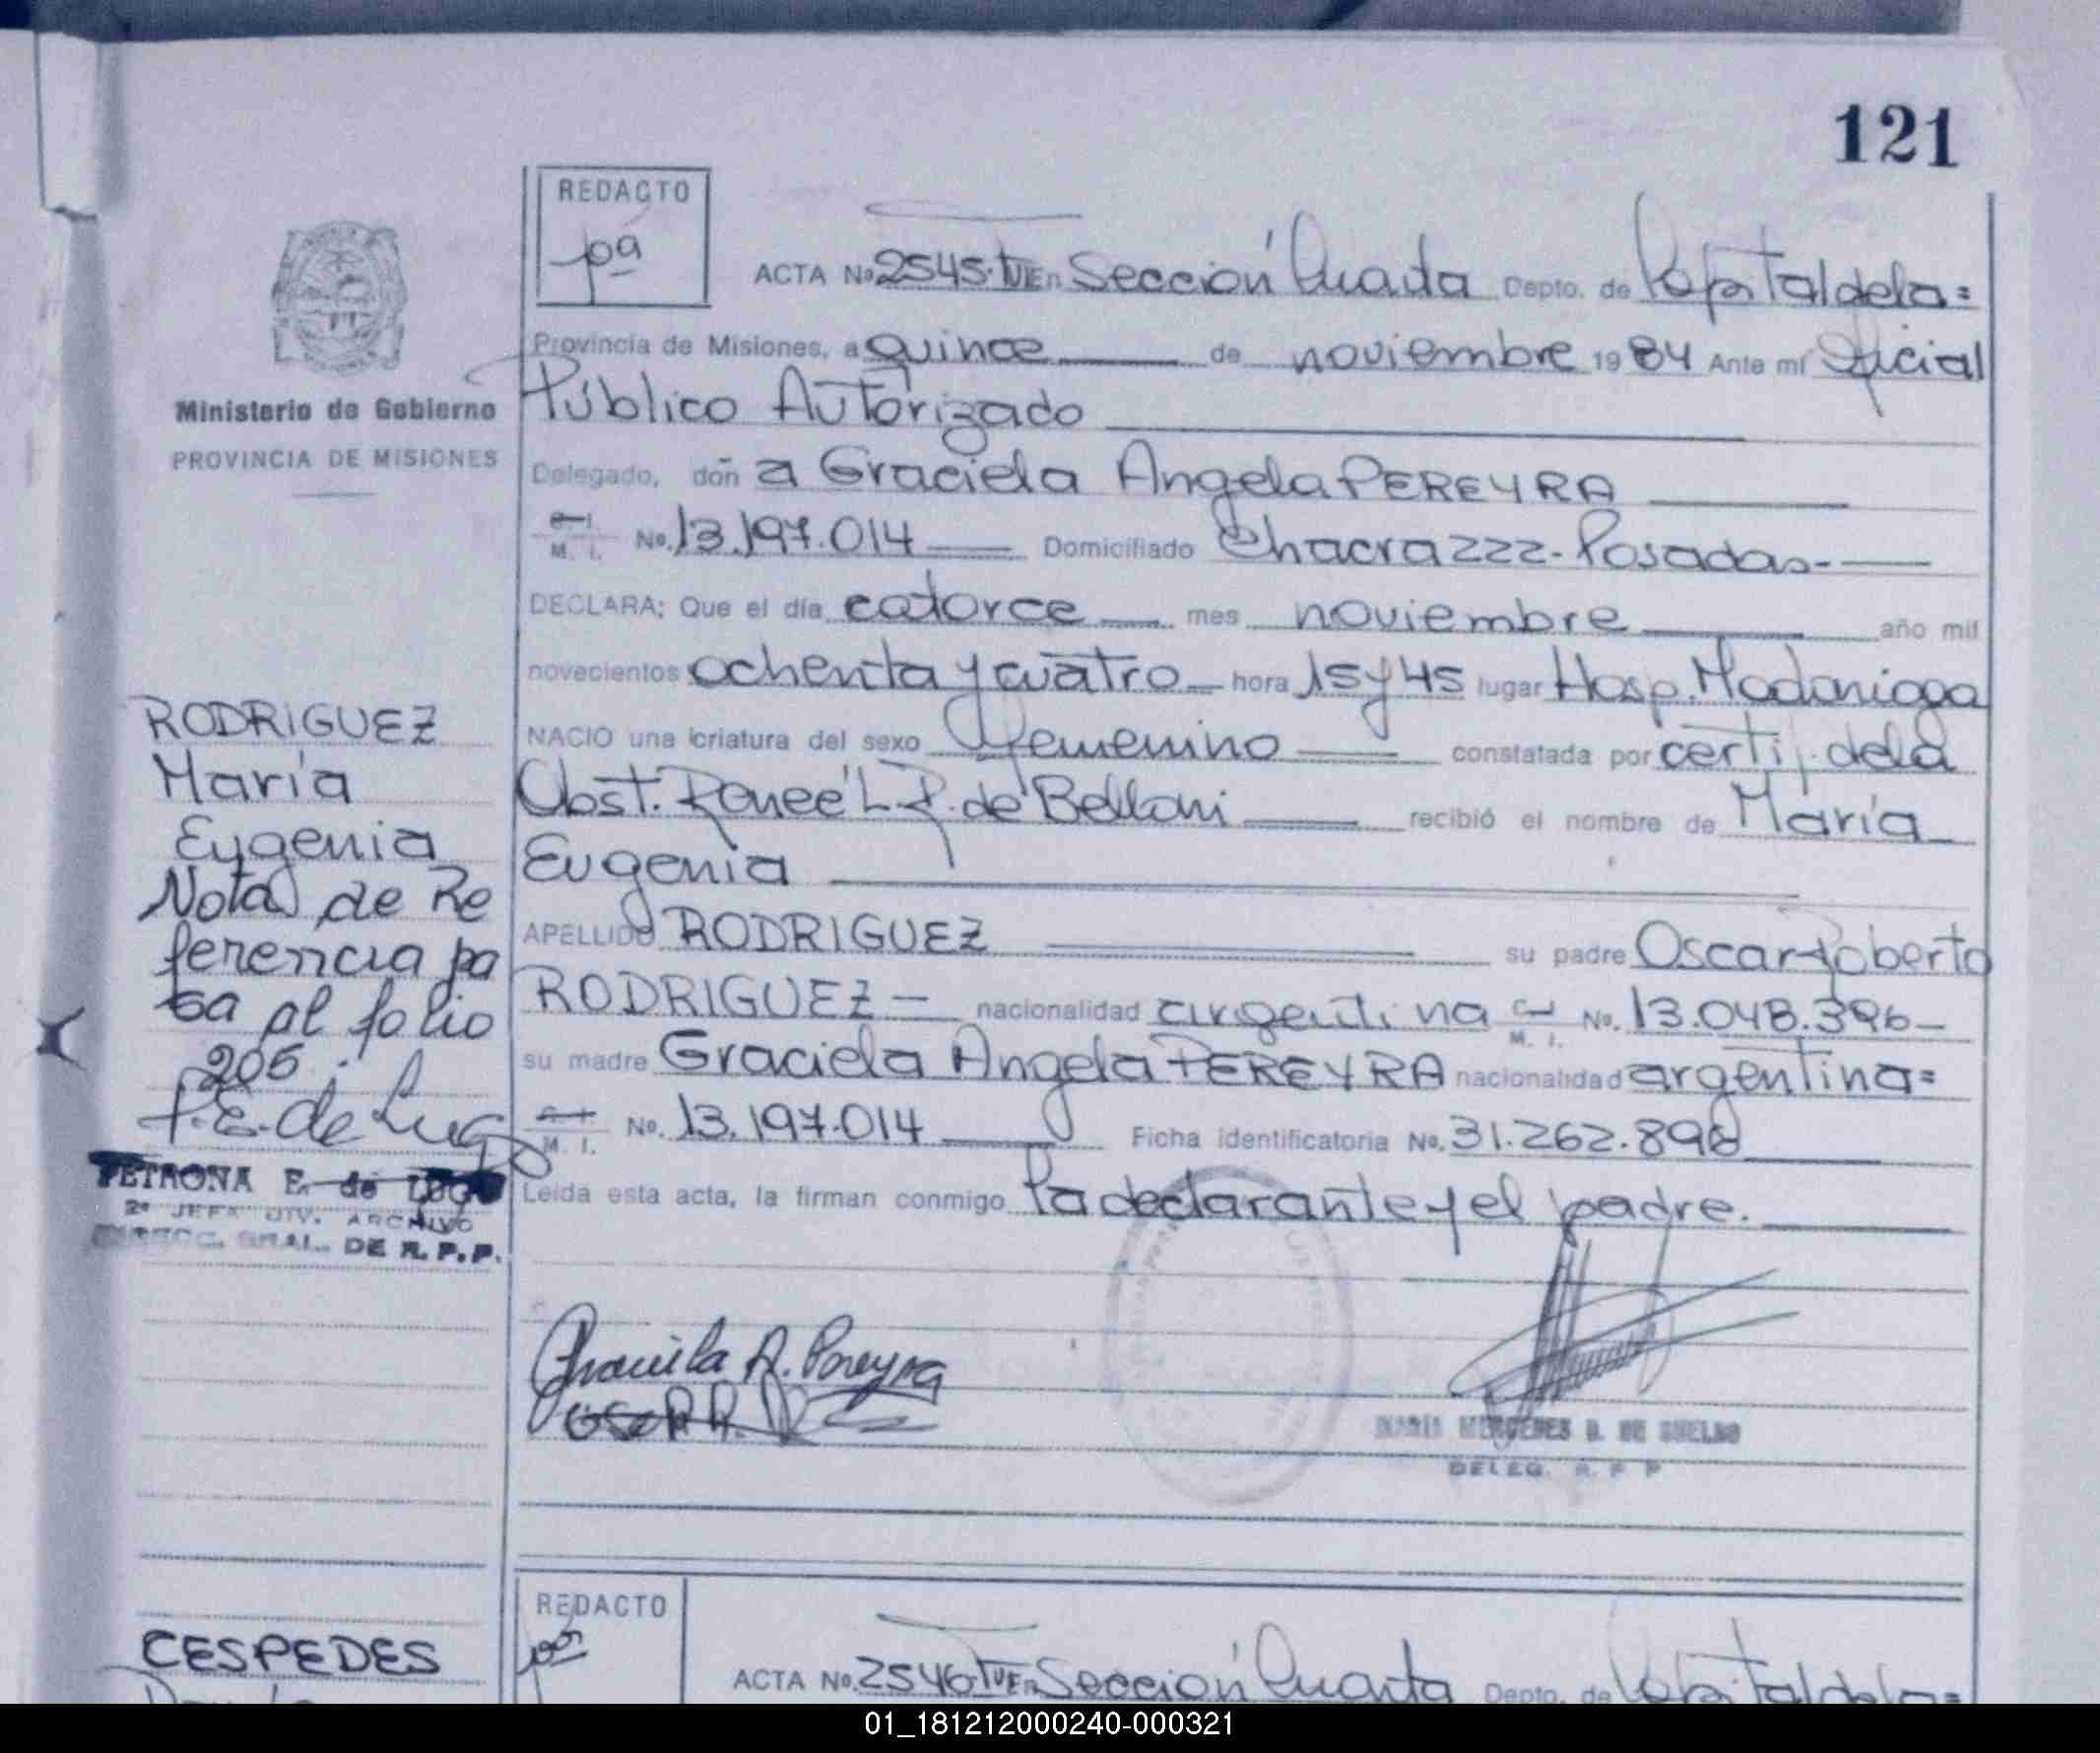 121
REDACTO
pa
ACTA No 2545. TVE En Sección Cuarta Depto. de Capital de la =
Provincia de Misiones, a quince de noviembre 1984 Ante mí Oficial
Público Autorizado
Delegado, doñ a Graciela Angela PEREYRA
C. I. M. I. No. 13.197.014 Domiciliado Chacra 222 - Posadas -
DECLARA; Que el día catorce mes noviembre año mil
novecientos ochenta y cuatro hora 15 y 45 lugar Hosp. Madariaga
NACIO una criatura del sexo femenino constatada por certif. de la
Obst. Reneé L. R. de Belloni recibió el nombre de María
Eugenia
APELLIDO RODRIGUEZ su padre Oscar Roberto
RODRIGUEZ - nacionalidad argentina C. I. M. I. No. 13.048.396 -
su madre Graciela Angela PEREYRA nacionalidad argentina =
C. I. M. I. No. 13.197.014 Ficha identificatoria No. 31.262.898
Leída esta acta, la firman conmigo la declarante y el padre.
Graciela A. Pereyra
MARIA MERCEDES D. DE
DELEG. R. P. P
Ministerio de Gobierno
PROVINCIA DE MISIONES
RODRIGUEZ
María
Eugenia
Nota de Re
ferencia pa
sa al folio
205.
P. E. de Lugo
PETRONA E. de LUGO
2ª JEFA DIV. ARCHIVO
DIRECC. GRAL. DE R. P. P.
REDACTO
ACTA No. 2546 TVE En Sección Cuarta Depto. de Capital de la =
CESPEDES
01_181212000240-000321